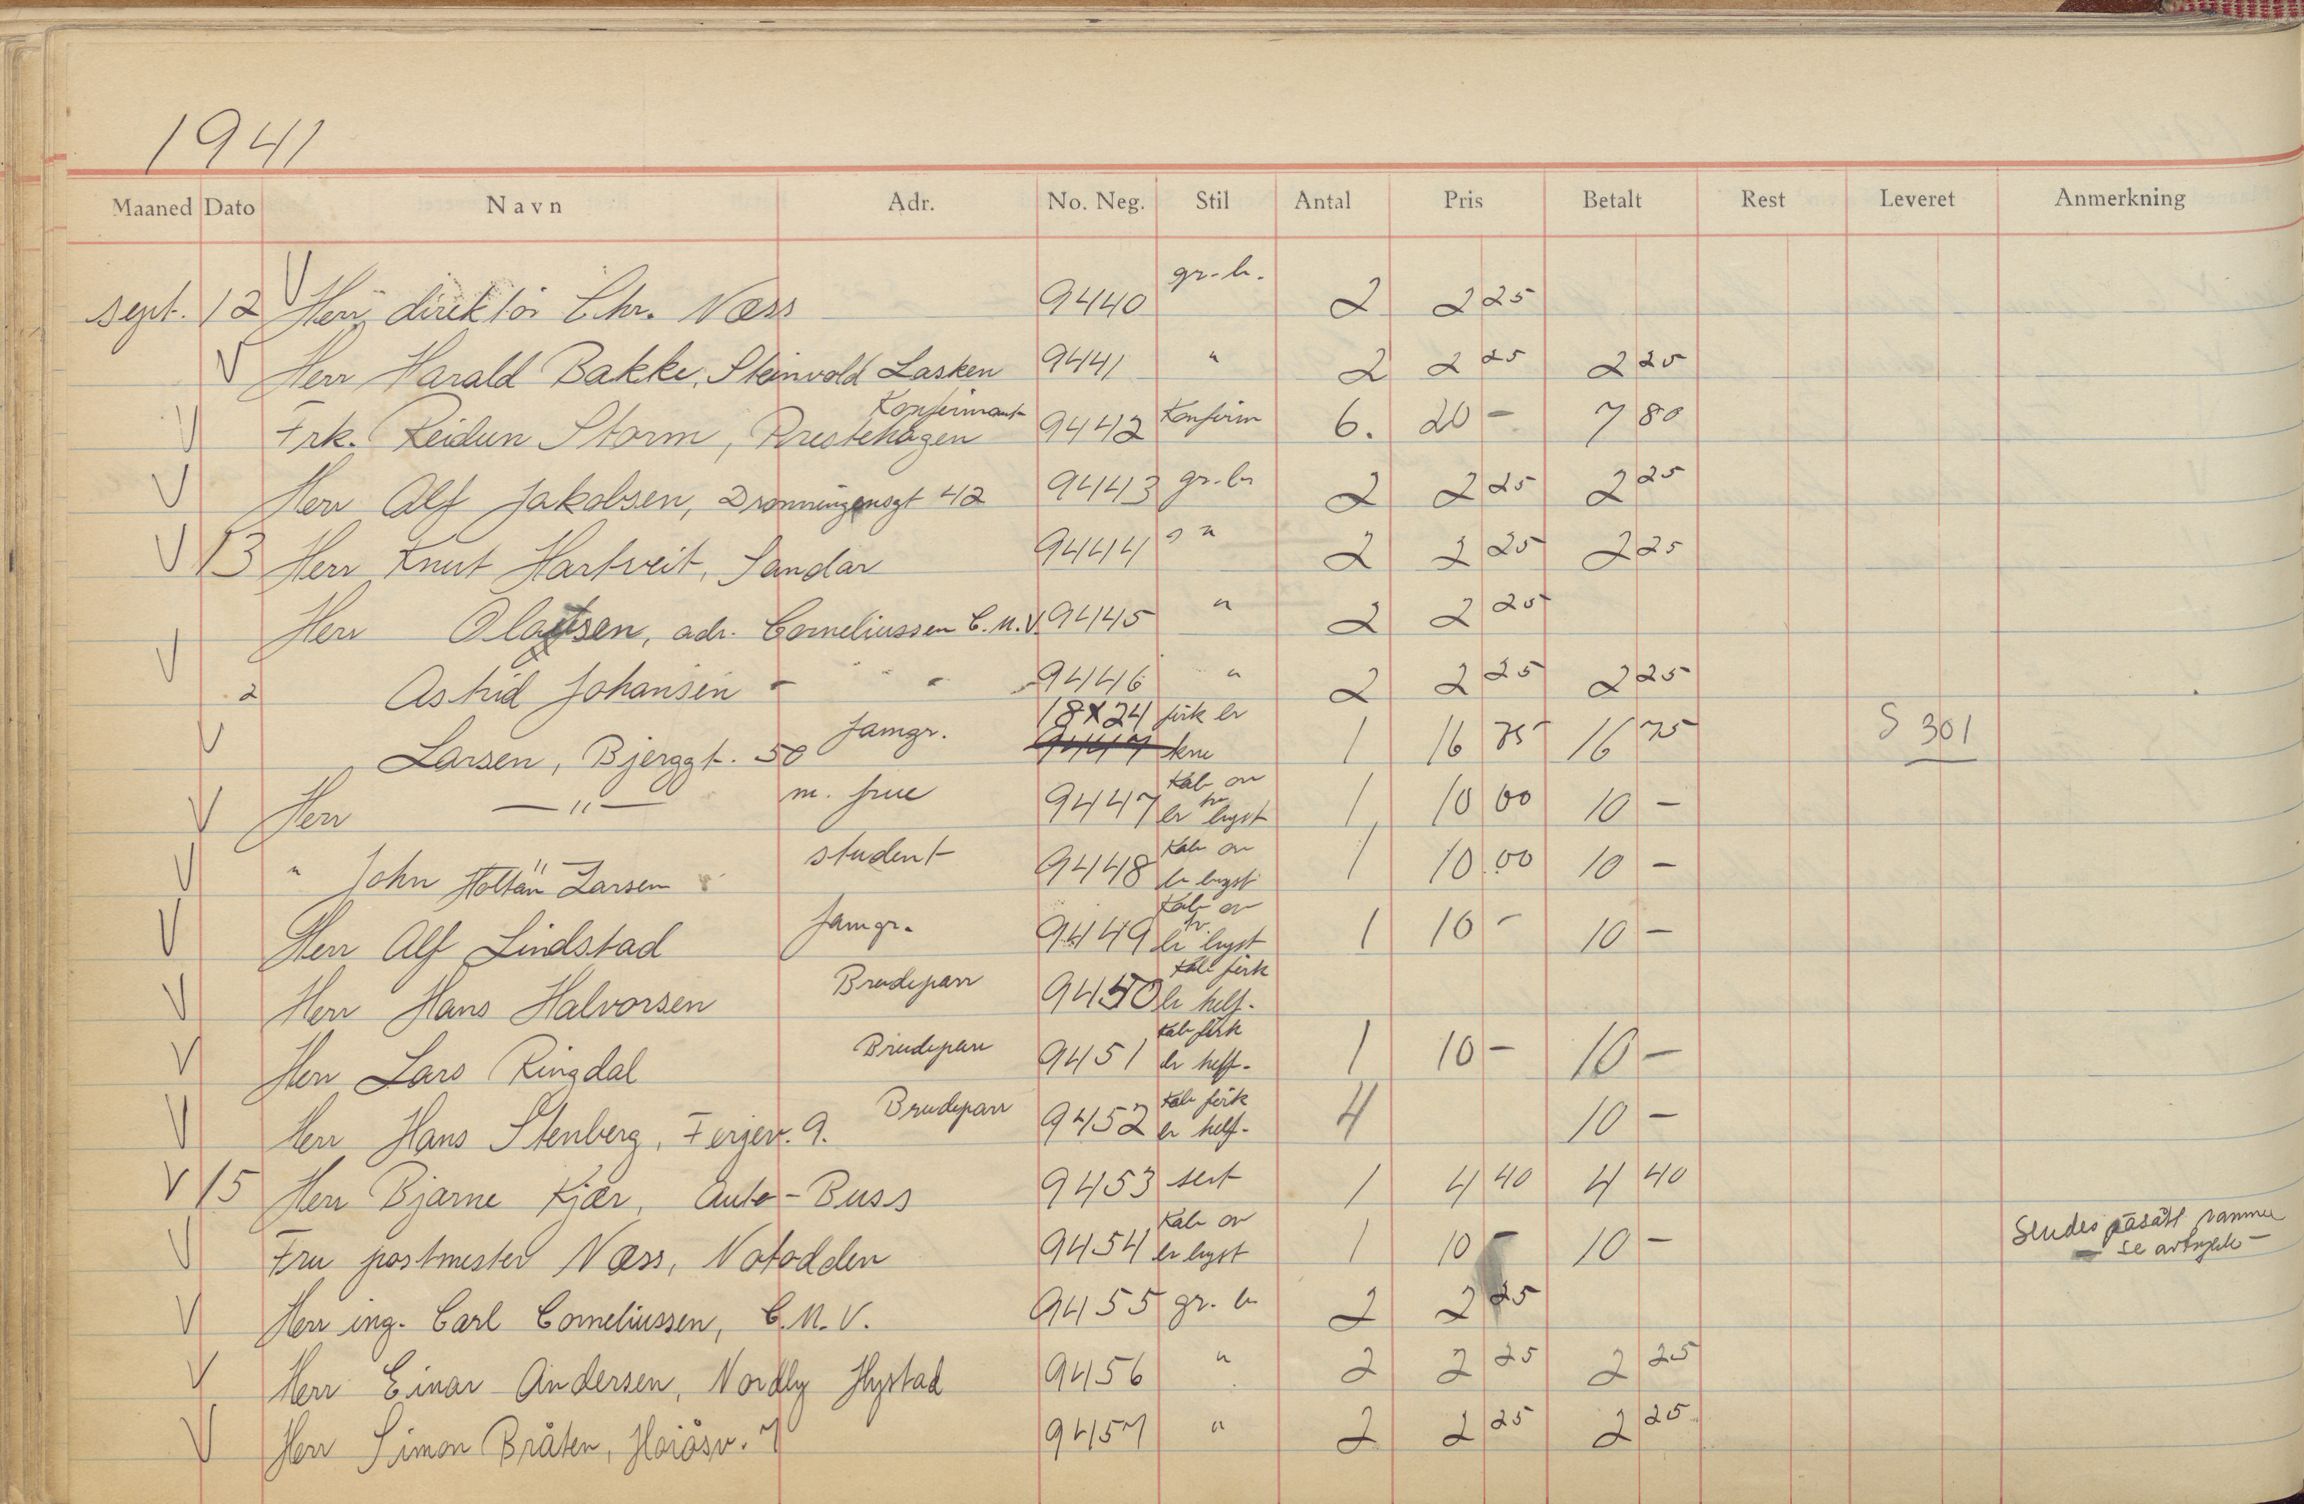 1941
Maaned Dato Navn Adr. No. Neg. Stil Antal Pris Betalt Rest Leveret Anmerkning
sept. 12 V Herr direktør Chr. Næss 9440 gr-br. 2 2 25
V Herr Harald Bakke, Steinvold Lasken 9441 " 2 2 25 2 25
V Frk. Reidun Storm, Prestehagen Konfirmant 9442 Konfirm 6. 20 – 7 80
V Herr Alf Jakobsen, Dronningensgt 42 9443 gr-br 2 2 25 2 25
V 13 Herr Knut Hartveit, Sandar 9444 " 2 2 25 2 25
Herr Olausen, adr. Corneliussen C.M.V. 9445 " 2 2 25
V 2 Astrid Johansen - " " 9446 " 2 2 25 2 25
V Larsen, Bjerggt. 50 famgr. 18x24 9447 firk br kne 1 16 75 16 75 S 301
V Herr —"— m. frue 9447 Kab ov br bryst 1 10 00 10 –
V " John Holtan Larsen student 9448 Kab ov br bryst 1 10 00 10 –
V Herr Alf Lindstad famgr. 9449 Kab ov br bryst 1 10 – 10 –
V Herr Hans Halvorsen Brudepar 9450 Kab firk br helf.
V Herr Lars Ringdal Brudepar 9451 Kab firk br helf. 1 10 – 10 –
V Herr Hans Stenberg, Ferjev. 9. Brudepar 9452 Kab firk br helf. 4 10 –
V 15 Herr Bjarne Kjær, Auto-Buss 9453 sert 1 4 40 4 40
V Fru postmester Næss, Notodden 9454 Kab ov br bryst 1 10 – 10 – Sendes påsatt ramme
se avtrykk –
V Herr ing. Carl Corneliussen, C.M.V. 9455 gr. br 2 2 25
V Herr Einar Andersen, Nordby Hystad 9456 " 2 2 25 2 25
V Herr Simon Bråten, Hoiåsv. 7 9457 " 2 2 25 2 25